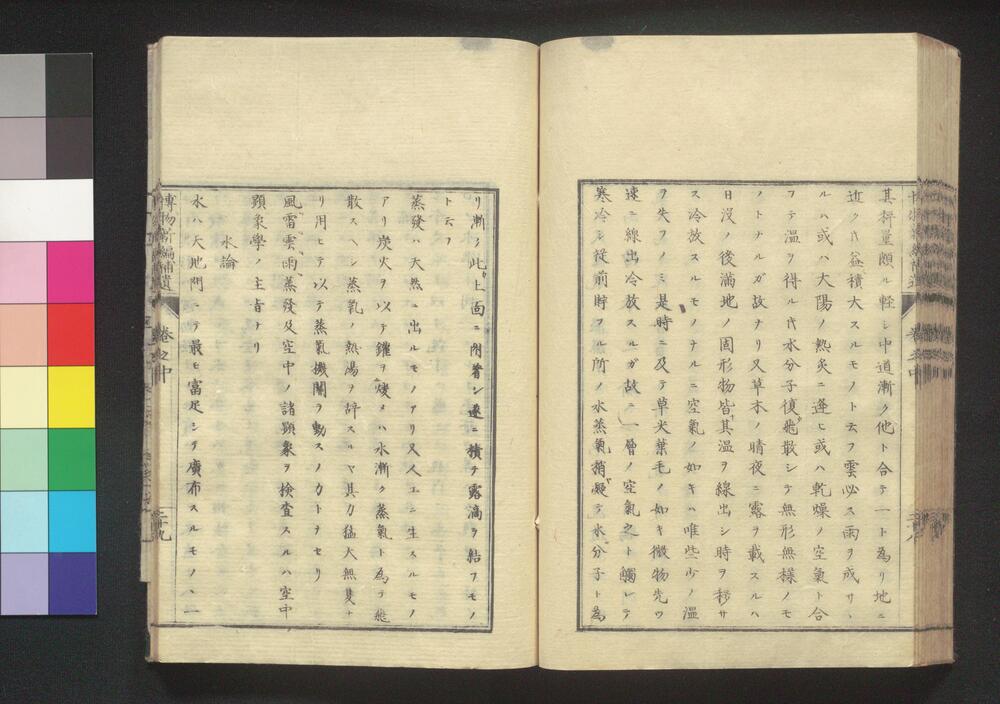 其秤量頗ル軽シ中道漸ク他ト合テ一ト為リ地ニ
近ク𪜈益積大スルモノト云フ雲必ス雨ヲ成サヽ
ルハ或ハ大陽ノ熱炙ニ逢ヒ或ハ乾燥ノ空氣ト合
フテ温ヲ得ル𪜈水分子復飛散シテ無形無様ノモ
ノトナルガ故ナリ又草木ノ晴夜ニ露ヲ載スルハ
日没ノ後満地ノ固形物皆其温ヲ線出シ時ヲ移サ
ス冷放スルモノナルニ空氣ノ如キハ唯些少ノ温
ヲ失フノミ是時ニ及テ草木葉毛ノ如キ微物先ツ
速ニ線出冷放スルガ故ニ一層ノ空氣之ト觸レテ
寒冷シ従前貯フル所ノ水蒸氣稍凝テ水分子ト為
リ漸ク此上面ニ附着シ遂ニ積テ露滴ヲ結フモノ
ト云フ
蒸發ハ天然ニ出ルモノアリ又人工ニ生スルモノ
アリ炭火ヲ以テ鑵ヲ煖メハ水漸ク蒸氣ト為テ飛
散スヘシ蒸氣ノ熱湯ヲ辞スルヤ其力猛大無隻ナ
リ用ヒテ以テ蒸氣機関ヲ動スノ力トセリ
風雷雲雨蒸發及空中ノ諸顕象ヲ検査スルハ空中
顕象學ノ主旨ナリ
水論
水ハ天地間ニテ最モ富足シテ廣布スルモノハ一
博物新編補遺 巻之中 二十九